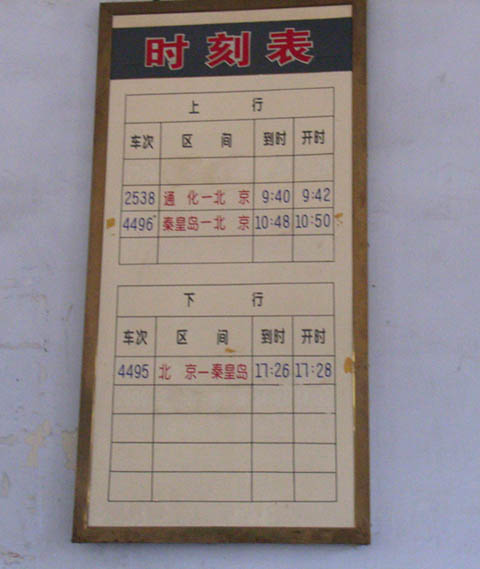 时刻表
上 行
车次 区 间 到时 开时
2538 通 化一北 京 9:40 9:42
4496 秦皇岛一北 京 10:48 10:50
下 行
车次 区 间 到时 开时
4495 北 京一秦皇岛 17:26 17:28